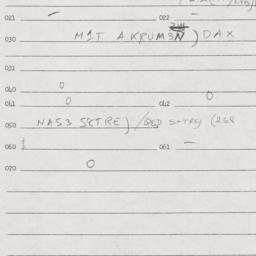 021 — 022 —
030 MIT AKRUM3N) DAX
031
040 0
041 0 042 0
050 NAS3 SKTRE) /QED SATRY (268
060 061 —
070 0